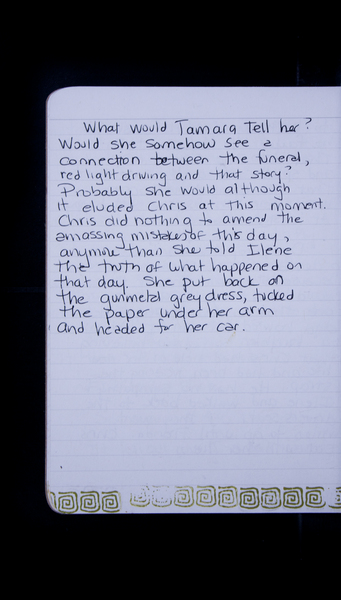 What would Tamara tell her?
Would she somehow see a
connection between the funeral,
red light driving and that story?
Probably she would although
it eluded Chris at this moment.
Chris did nothing to amend the
amassing mistakes of this day,
anymore than she told Ilene
the truth of what happened on
that day. She put back on
the gunmetal grey dress, tucked
the paper under her arm
and headed for her car.